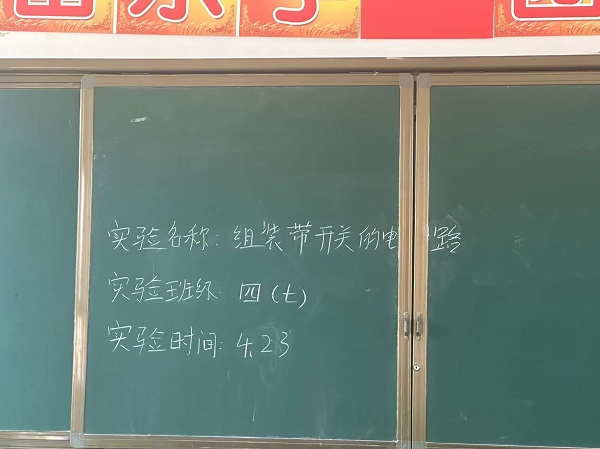 实验名称：组装带开关的电路
实验班级：四（七）
实验时间：4.23